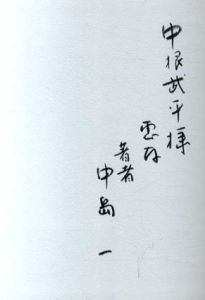 中根武平様
恵存
著者
中島一